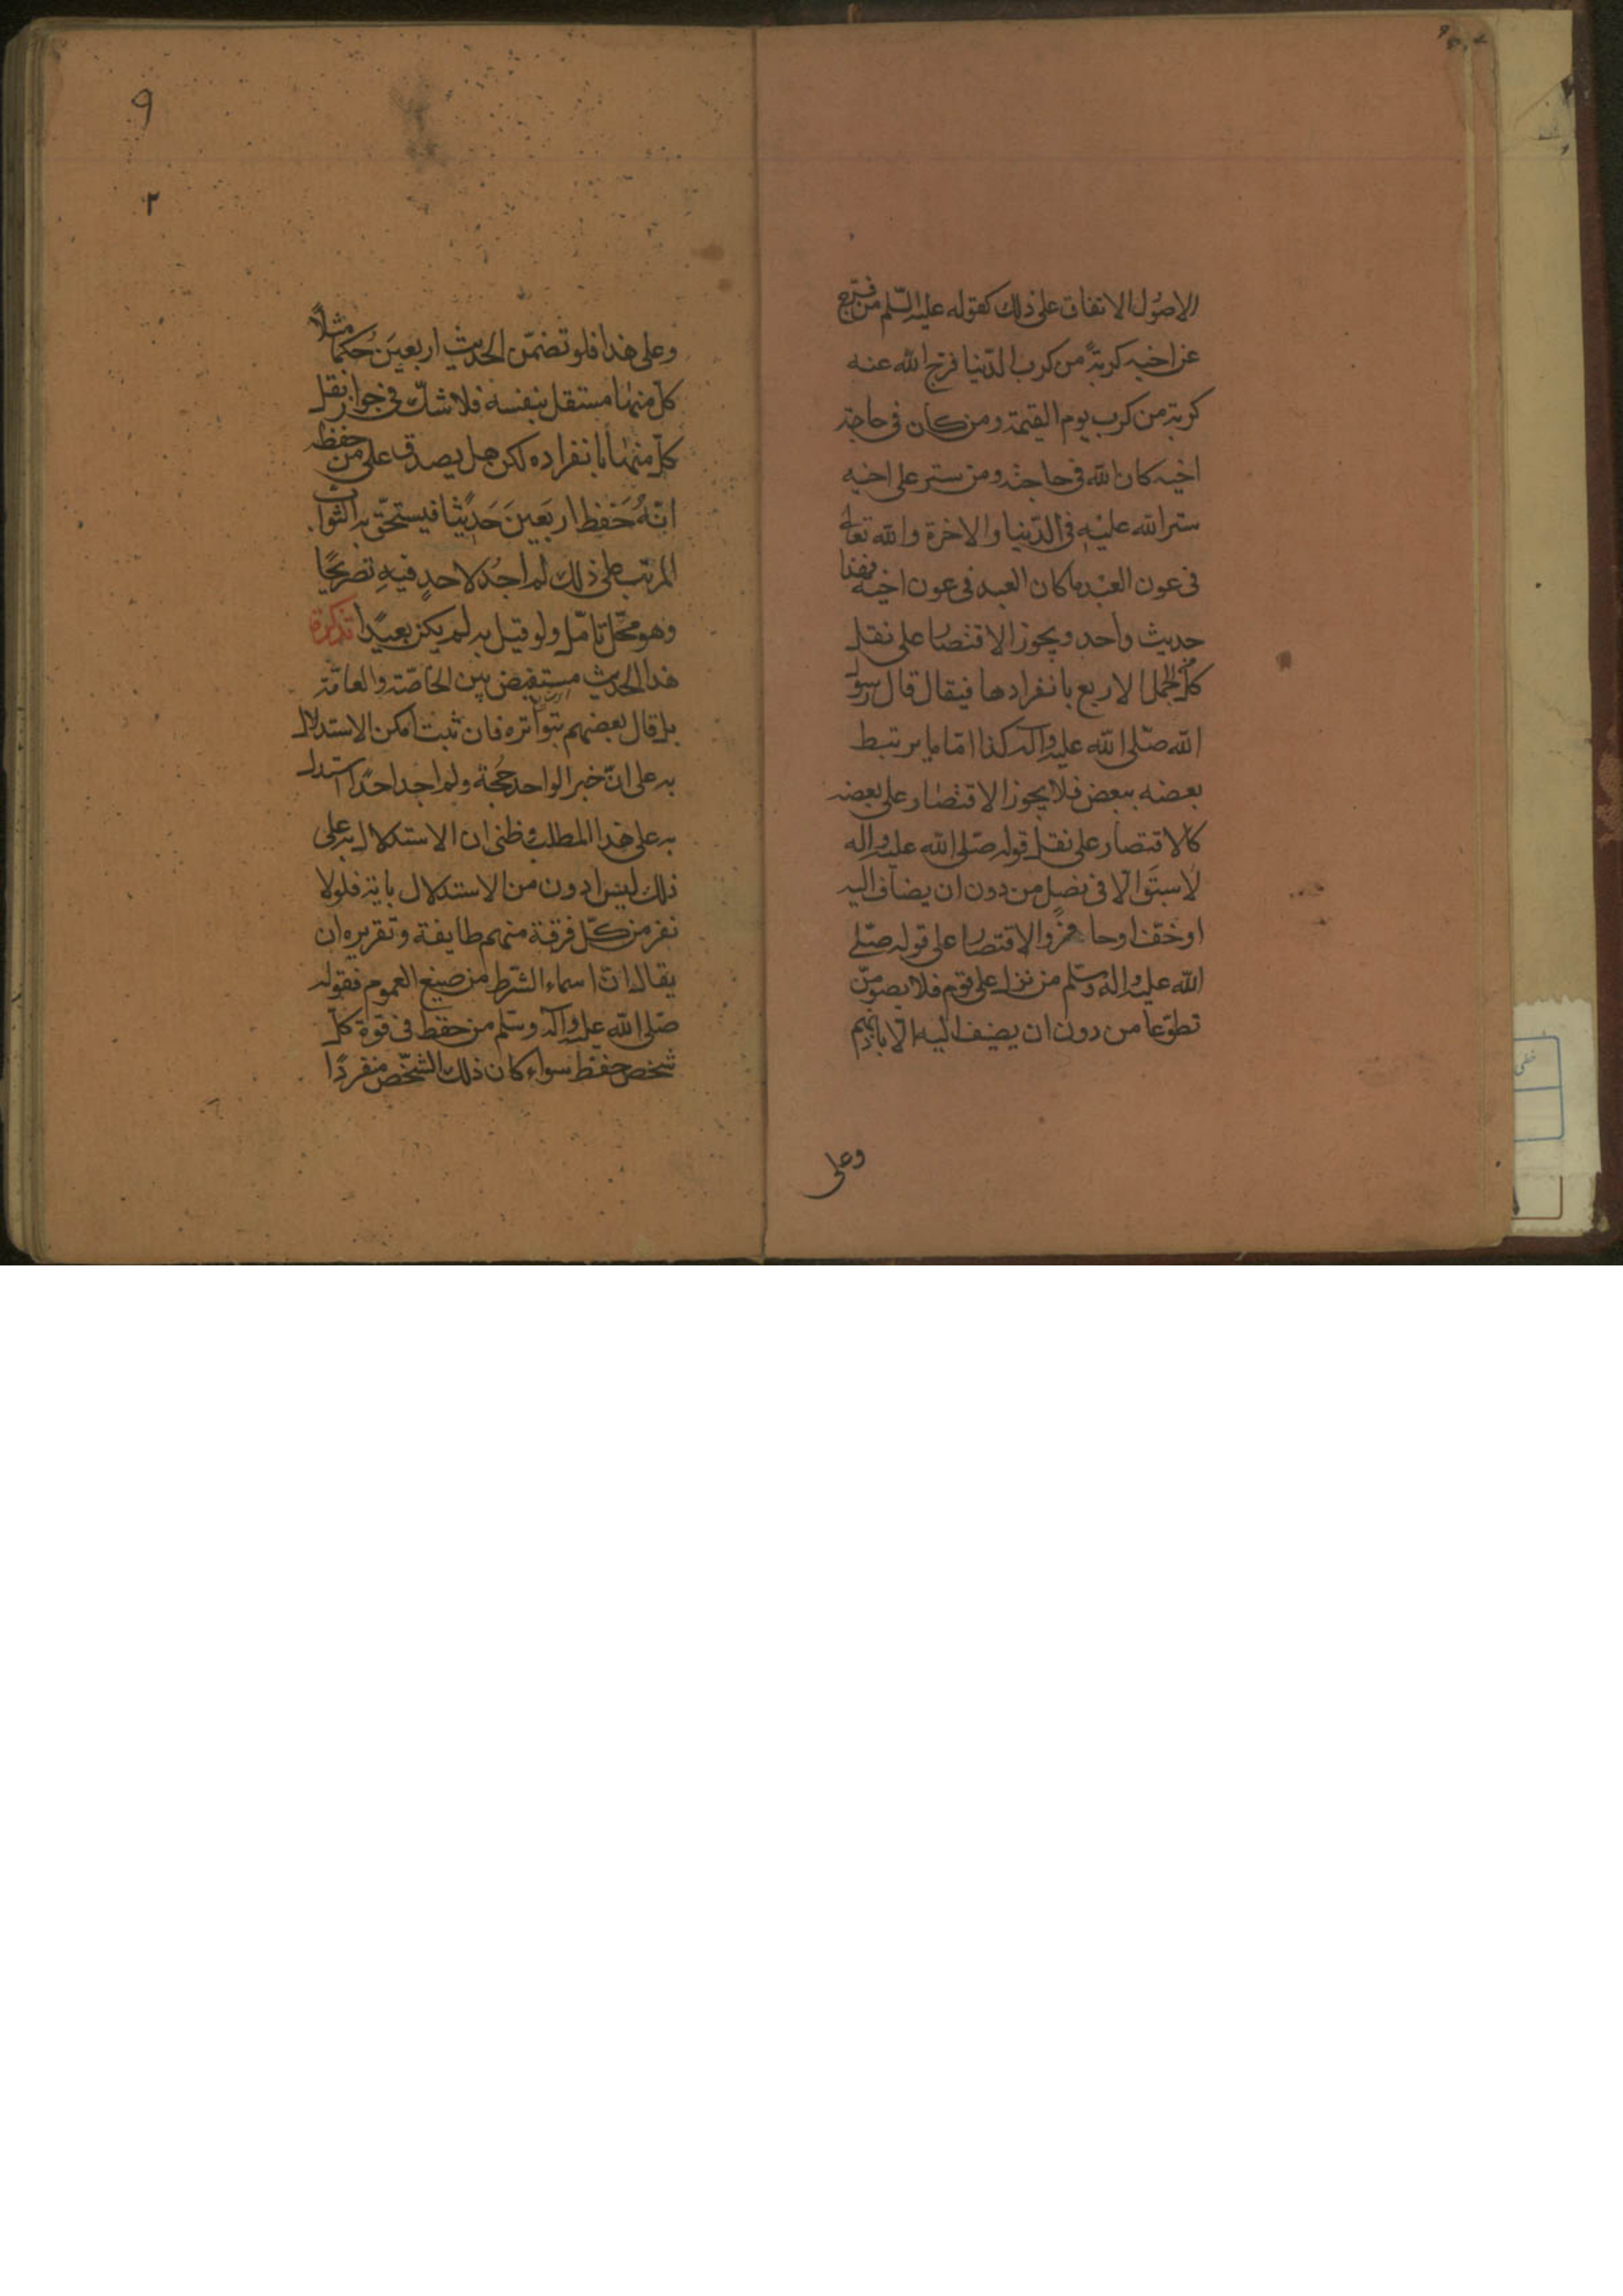 الاصُول الاتفاق على ذلك كقوله عليه السّلم من فرّج
عن اخيه كربةً من كرب الدّنيا فرّج الله عنه
كربة من كرب يوم القيمة ومن كان فى حاجة
اخيه كان الله فى حاجته ومن ستر على اخيه
ستر الله عليْهِ فى الدّنيا والاخرة والله تعالى
فى عون العبْد ما كان العبد فى عون اخيه فهذا
حديث واحد ويجوز الاقتصار على نقل
كلّ من الجمل الاربع بانفرادها فيقال قال رسول
الله صّلى الله عليه وآله كذا امّا ما يرتبط
بعضه ببعض فلا يجوز الاقتصار على بعضه
كالاقتصار على نقل قوله صّلى الله عليه واله
لاسبَق الّا فى نصل من دون ان يضاف اليه
او خفّ او حافر والاقتصار على قوله صّلى
الله عليه واله وسّلم من نزل على قوم فلا يصومنّ
تطوّعا من دون ان يضيف اليه الّا باذنهم
وعلى
٩
٢
وعلى هذا فلو تضمّن الحديث اربعينَ حُكمًا مثلاً
كلّ منها مستقل بنفسه فلا شكّ فى جواز نقل
كلّ منها بانفراده لكن هل يصدق على من حفظه
انّهُ حَفِظ اربَعينَ حَدِيثًا فيستحقّ به الثواب
المرتّب على ذلك لم اجُد لاحدٍ فيهِ تصريحًا
وهو محّل تامّل ولو قيل به لم يكن بعيدًا تذكرة
هذا الحديث مستفيض بين الخاصّة والعامّة
بل قال بعضهم بتواتره فان ثبت امكن الاستدلال
به على انّ خبر الواحد حُجة ولم اجد احدًا استدل
به على هذا المطلب وظنى ان الاستدلال به على
ذلك ليس ادون من الاستدلال باية فلولا
نفر من كلّ فرقة منهم طايفة وتقريره ان
يقال انّ اسماء الشّرط من صيغ العموم فقوله
صّلى الله عليه وآله وسّلم من حفظ فى قوة كلّ
شخص حفظ سواء كان ذلك الشّخص منفردًا